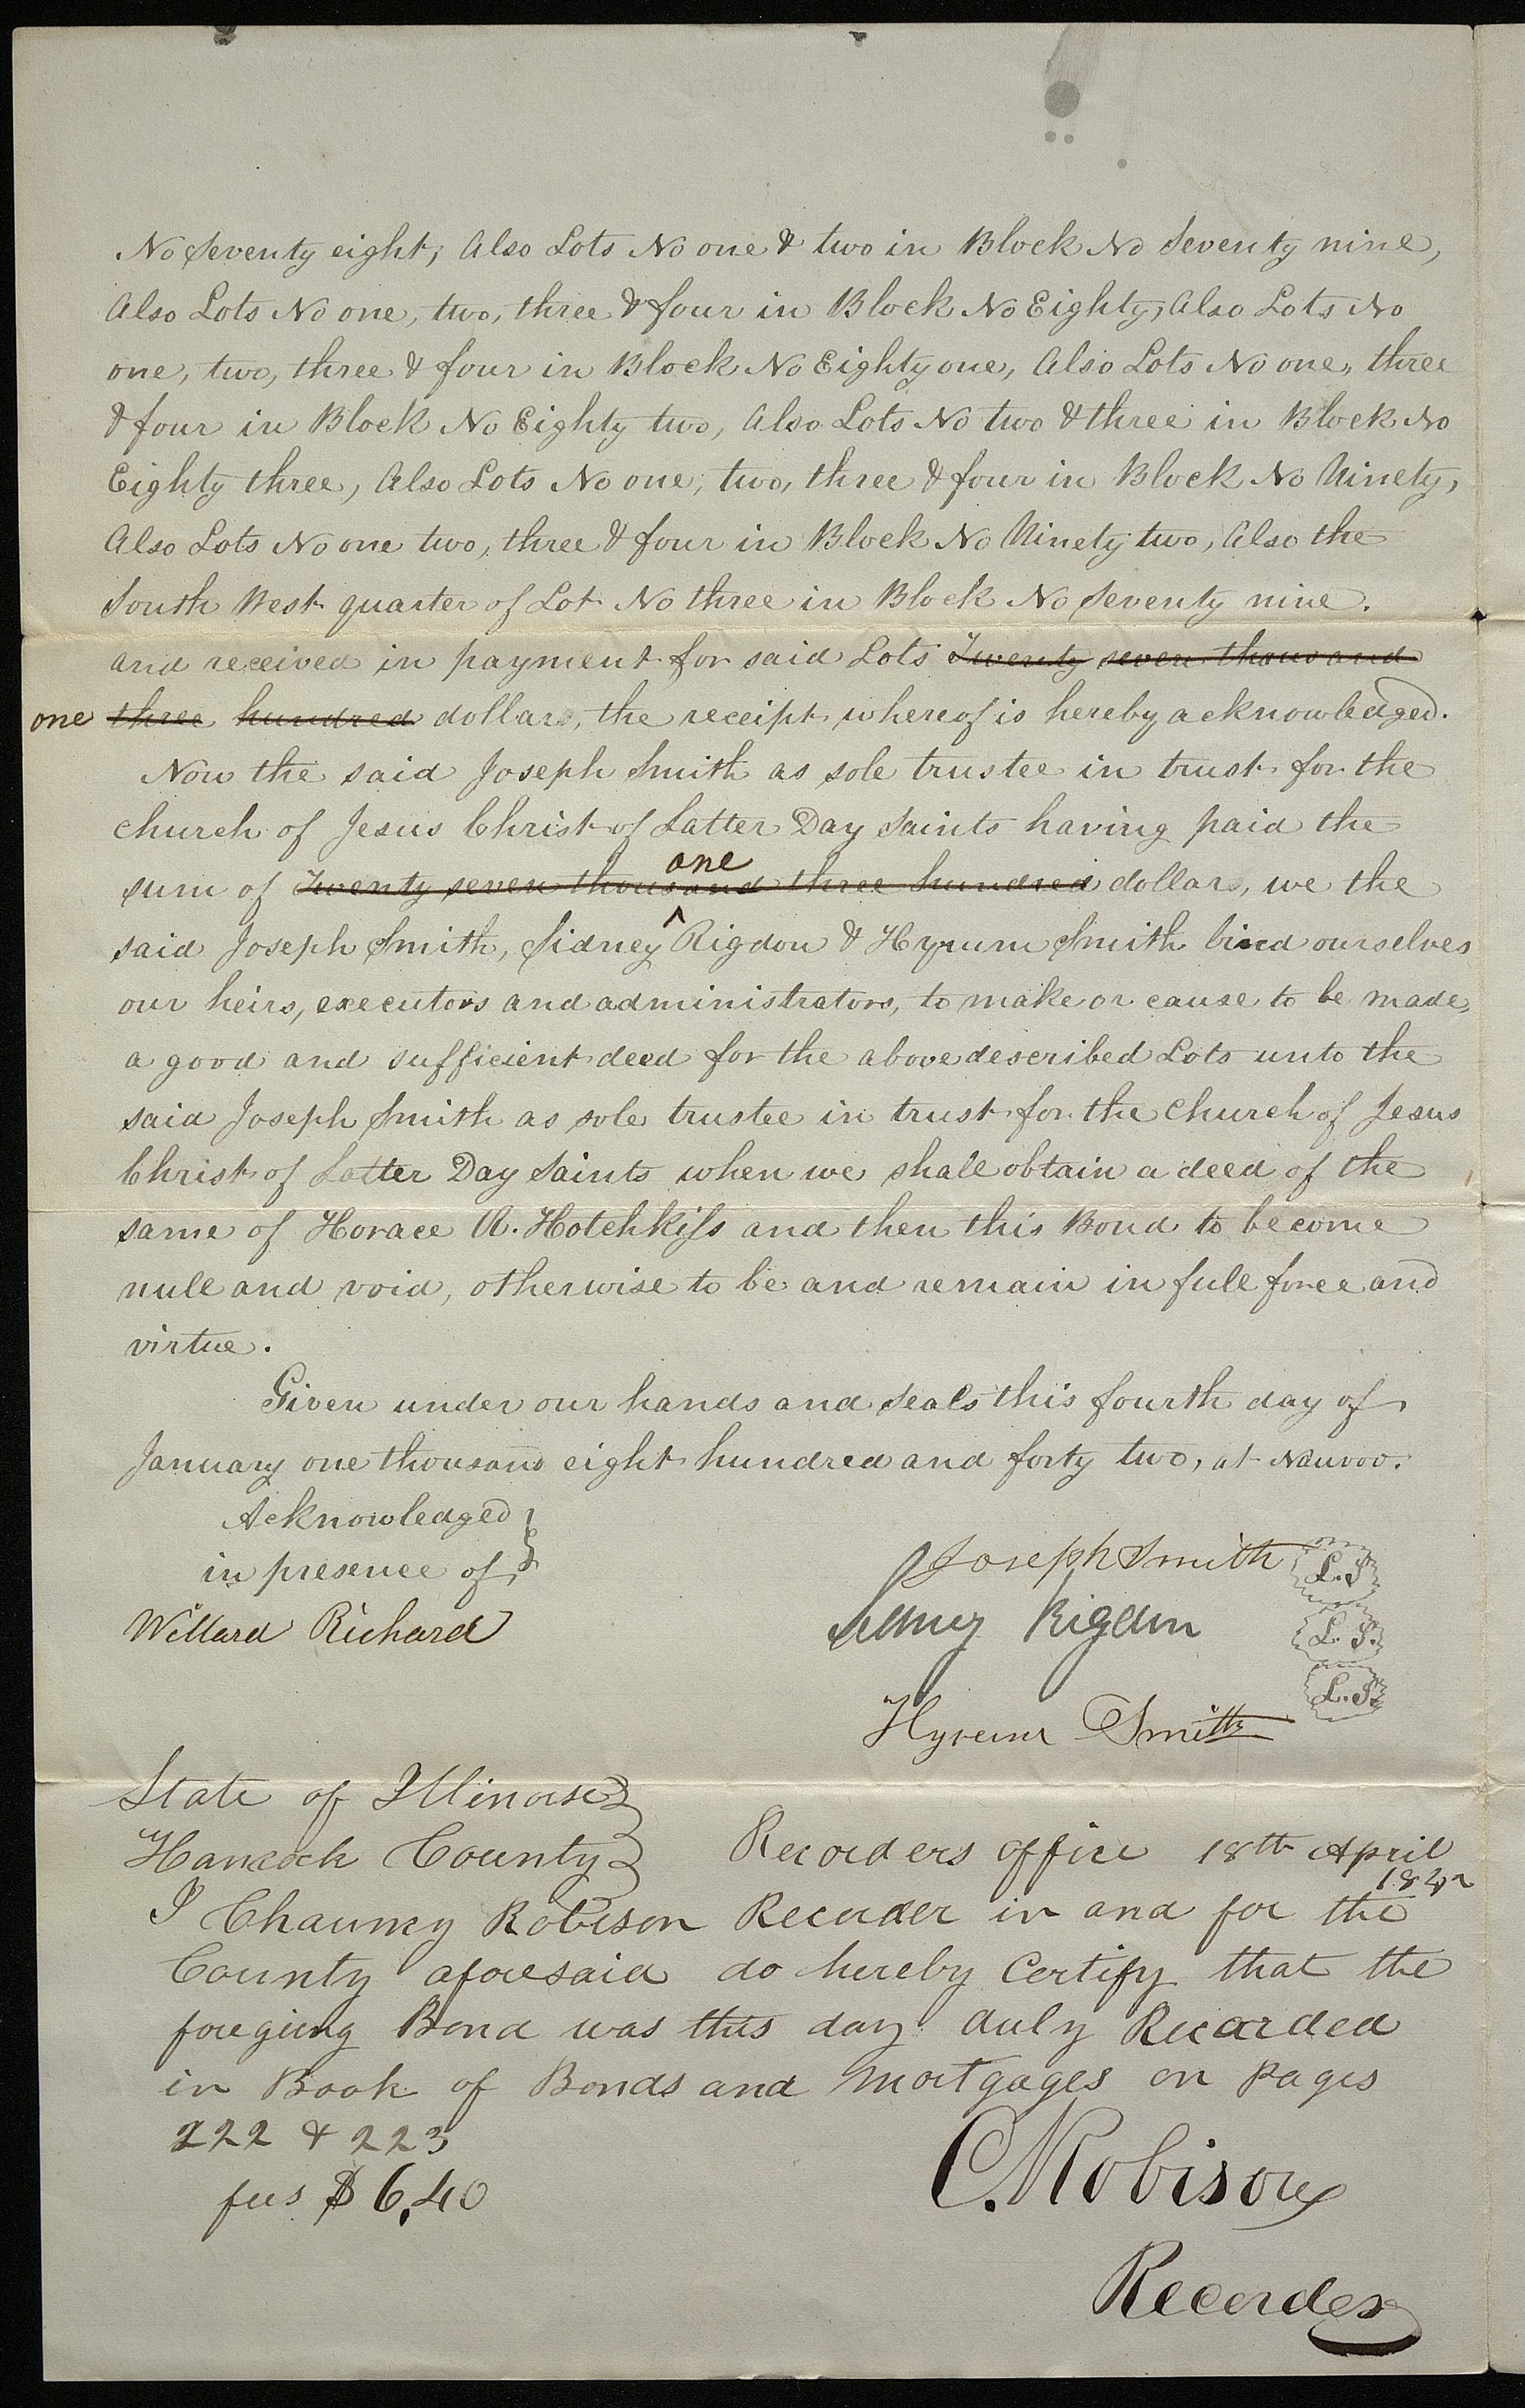 No Seventy eight; Also Lots No one & two in Block No Seventy nine,
Also Lots No one, two, three & four in Block No Eighty, Also Lots No
one, two, three & four in Block No Eighty one, Also Lots No one, three
& four in Block No Eighty two, Also Lots No two & three in Block No
Eighty three, Also Lots No one, two, three & four in Block No Ninety,
Also Lots No one two, three & four in Block No Ninety two, Also the
South West quarter of Lot No three in Block No Seventy nine.
and received in payment for said Lots Twenty seven thousand
one three hundred dollars, the receipt whereof is hereby acknowledged.
Now the said Joseph Smith as sole trustee in trust for the
church of Jesus Christ of Latter Day Saints having paid the
one
sum of Twenty seven thousand three hundred dollars, we the
said Joseph Smith, Sidney Rigdon & Hyrum Smith bind ourselves
our heirs, executors and administrators, to make or cause to be made,
a good and sufficient deed for the above described Lots unto the
said Joseph Smith as sole trustee in trust for the Church of Jesus
Christ of Latter Day Saints when we shall obtain a deed of the
same of Horace R. Hotchkiss and then this Bond to become
null and void, otherwise to be and remain in full force and
virtue.
Given under our hands and seals this fourth day of
January one thousand eight hundred and forty two, at Nauvoo.
Acknowledged
in presence of
Willard Richards
Joseph Smith L.S
Sidney Rigdon L.S.
Hyrum Smith L.S.
State of Illinois
Hancock County Recorders office 18th April
1842
I Chauncy Robison Recorder in and for the
County aforesaid do hereby Certify that the
foregoing Bond was this day duly Recorded
in Book of Bonds and Mortgages on Pages
222 & 223
fees $6,40
C. Robison
Recorder